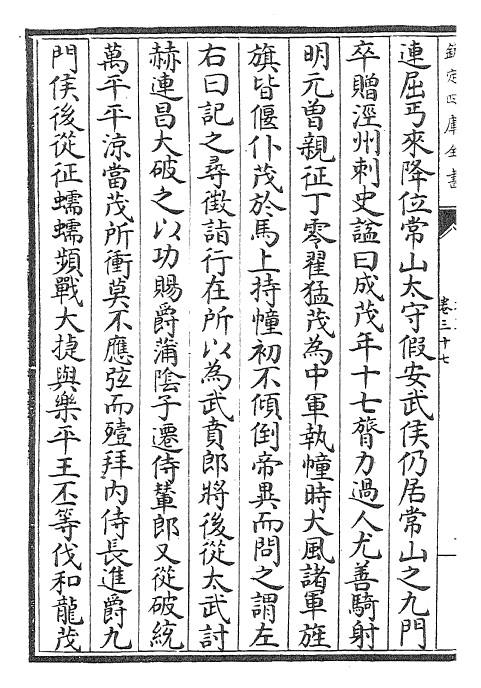 欽定四庫全書
卷三十七
連屈丐來降位常山太守假安武侯仍居常山之九門
卒贈涇州刺史諡曰成茂年十七膂力過人尤善騎射
明元曽親征丁零翟猛茂為中軍執幢時大風諸軍旌
旗皆偃仆茂於馬上持幢初不傾倒帝異而問之謂左
右曰記之尋徵詣行在所以為武賁郎將後從太武討
赫連昌大破之以功賜爵蒲陰子遷侍輦郎又從破統
萬平平涼當茂所衝莫不應弦而殪拜内侍長進爵九
門侯後從征蠕蠕頻戰大捷與樂平王丕等伐和龍茂